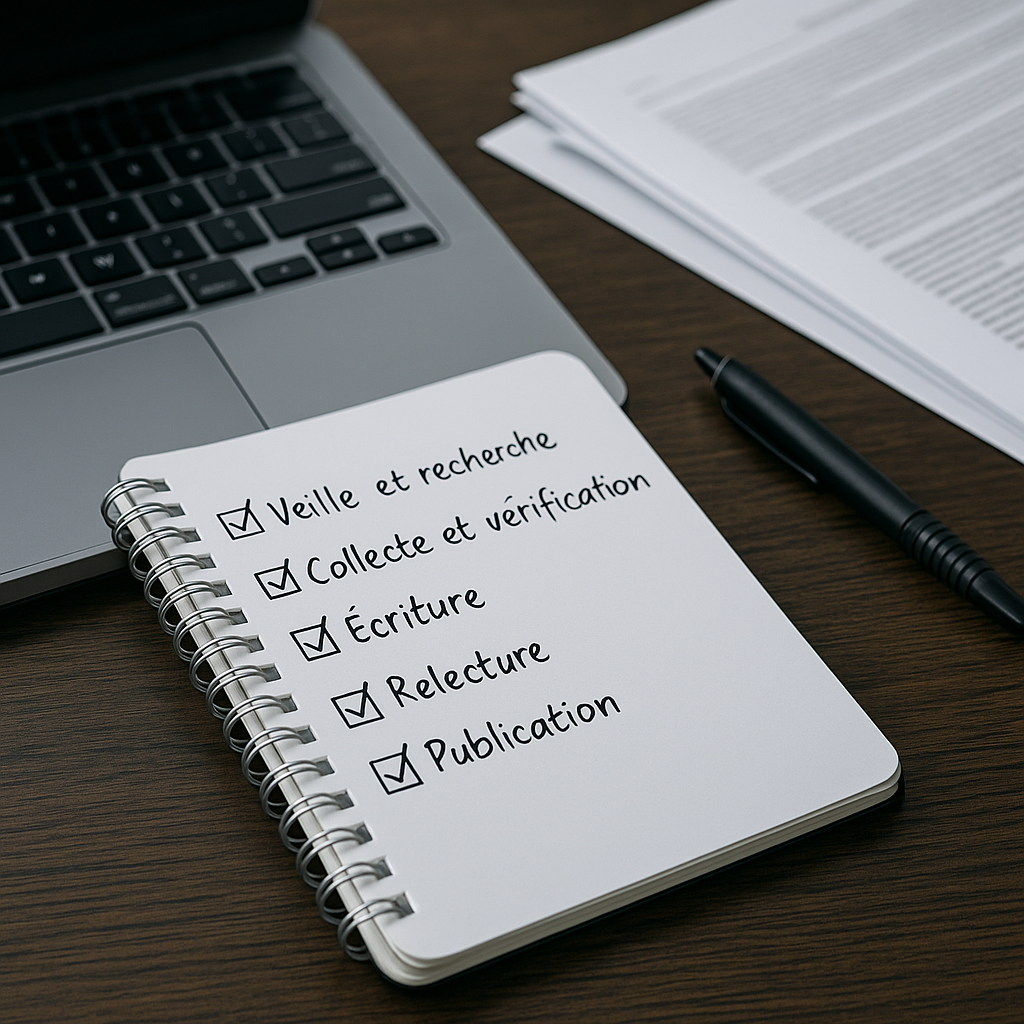 Veille et recherche
Collecte et vérification
Écriture
Relecture
Publication